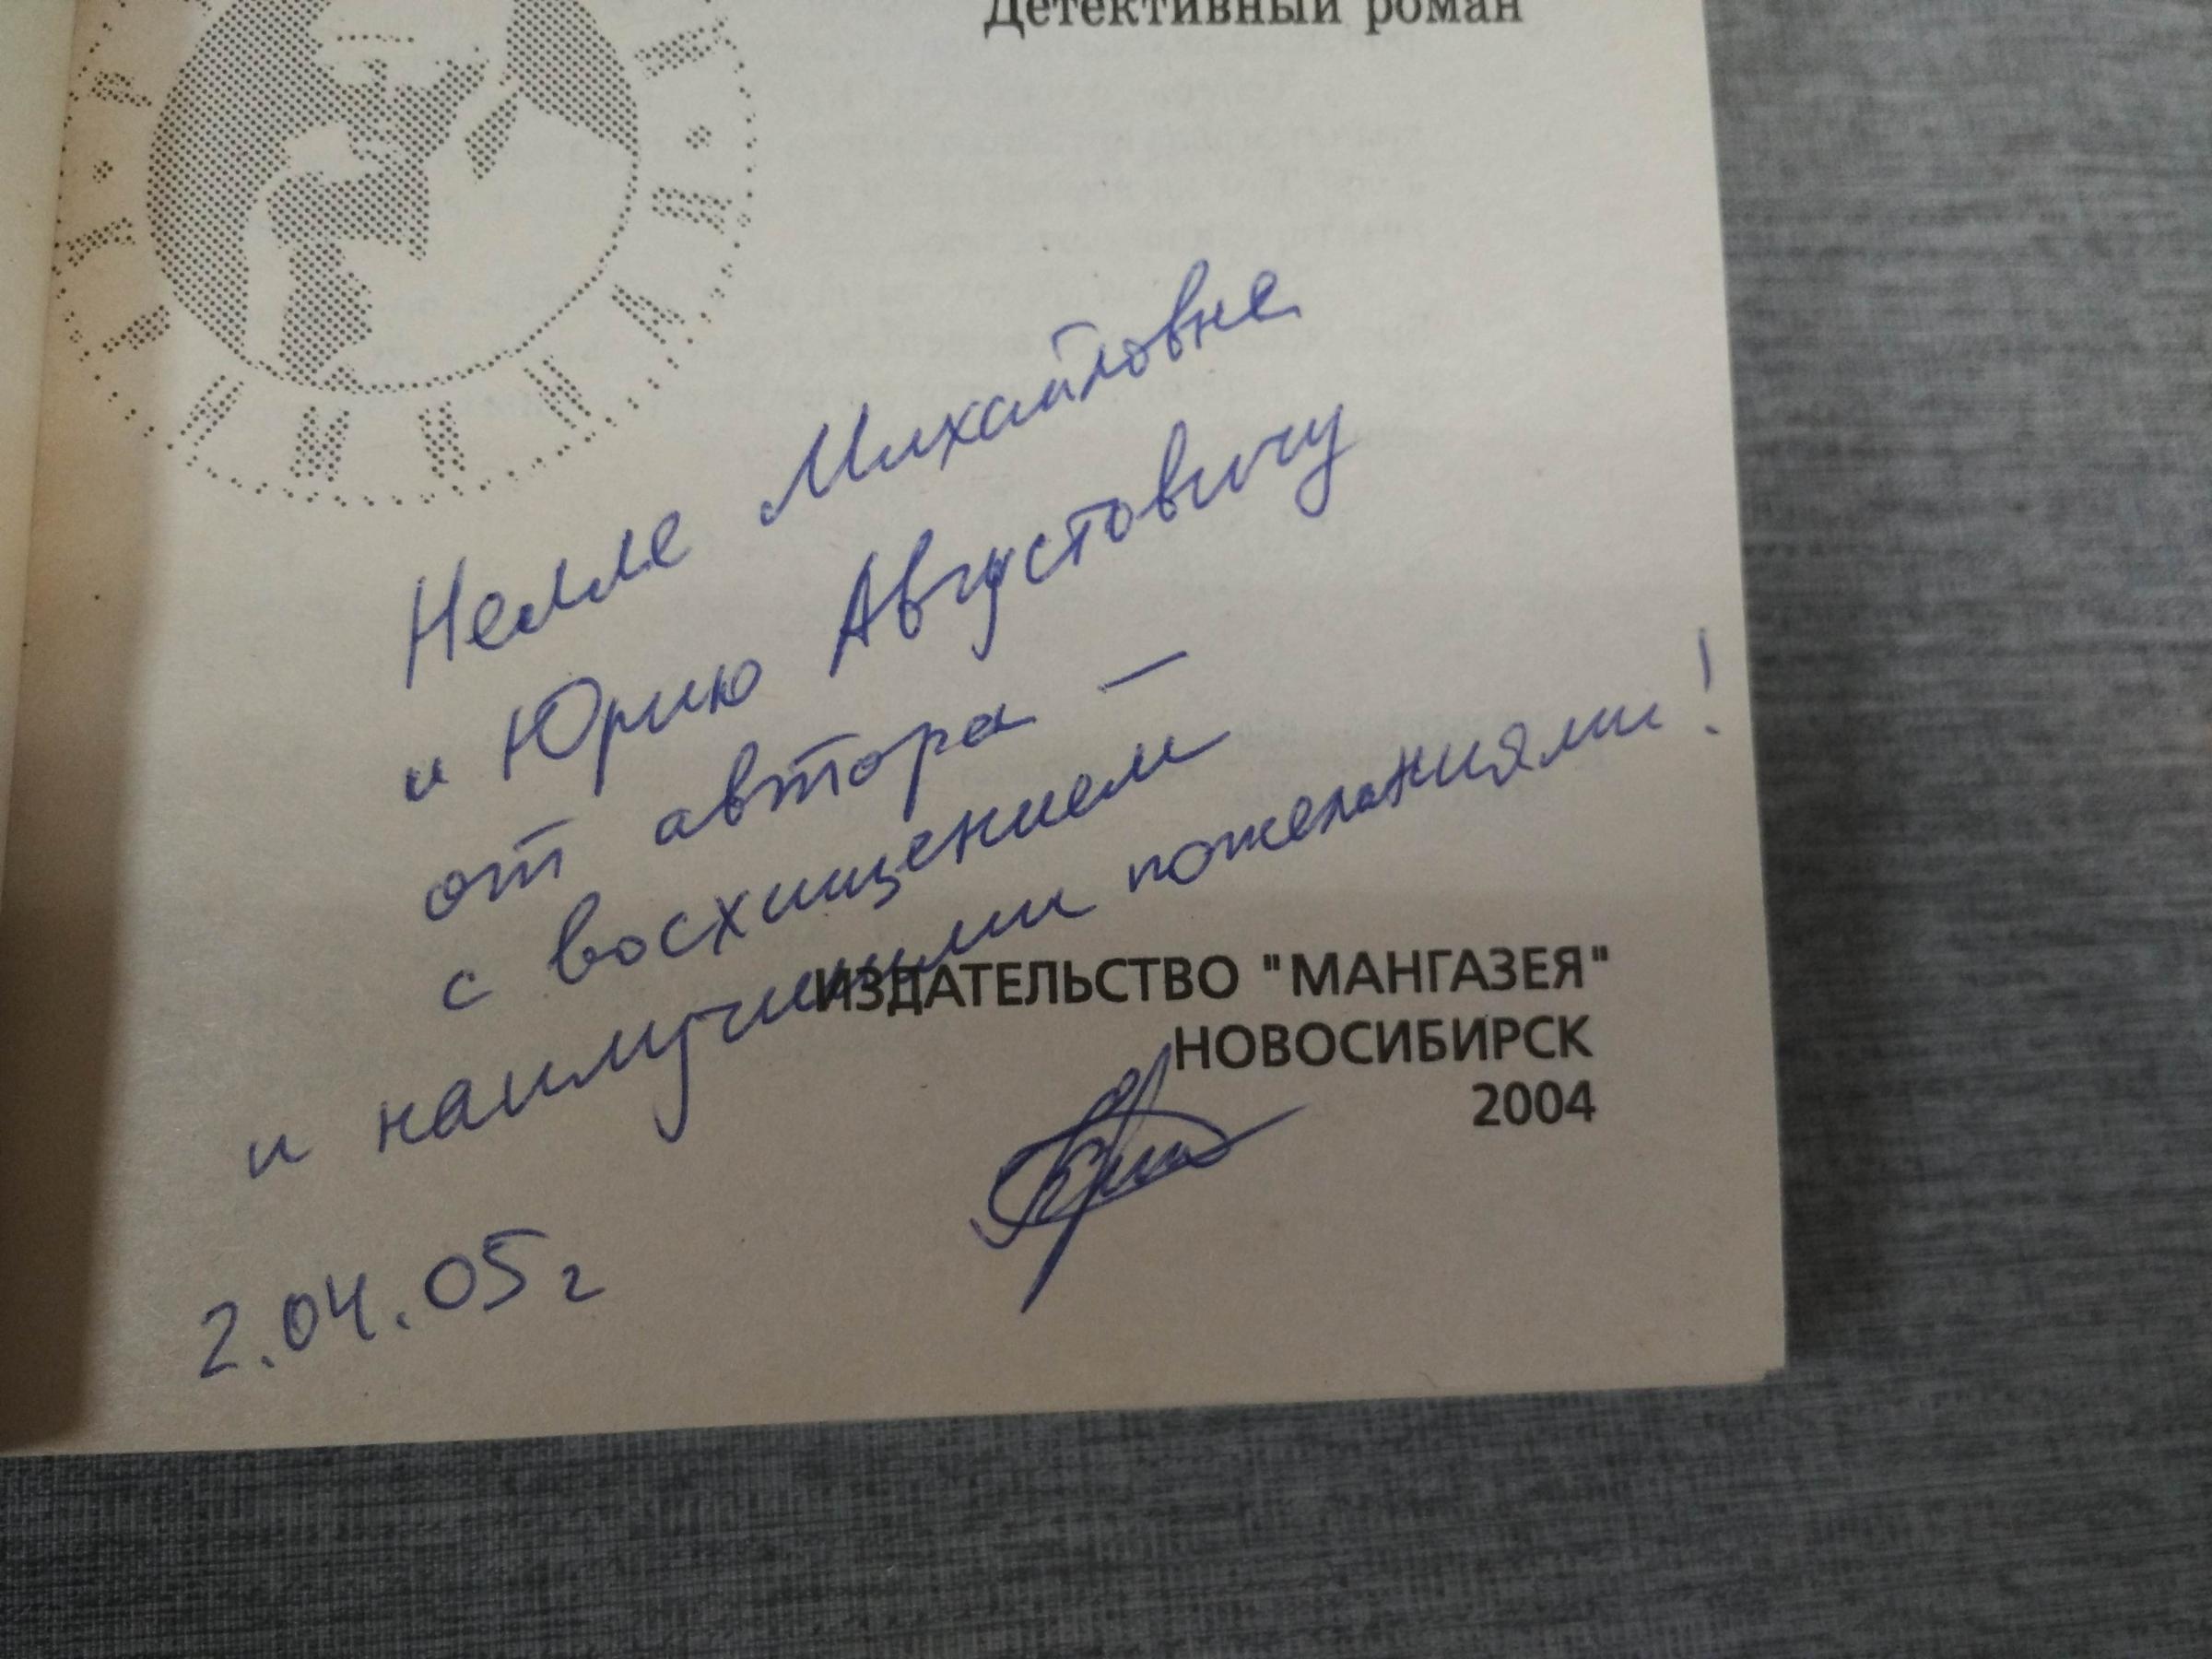 Детективный роман
Нелле Михайловне
и Юрию Августовичу
от автора —
с восхищением
и наилучшими пожеланиями!
ИЗДАТЕЛЬСТВО "МАНГАЗЕЯ"
НОВОСИБИРСК
2004
2.04.05г